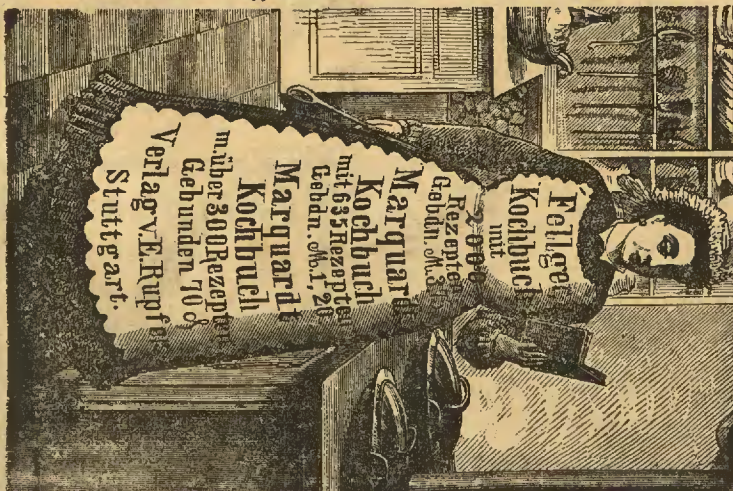 Fellger
Kochbuch
mit
2000
Rezepten
Gebdn. M. 3
Marquardt
Kochbuch
mit 635 Rezepten
Gebdn. M. 1,20
Marquardt
Kochbuch
m. über 300 Rezepten
Gebunden 70 ₰
Verlag v. E. Rupfer
Stuttgart.